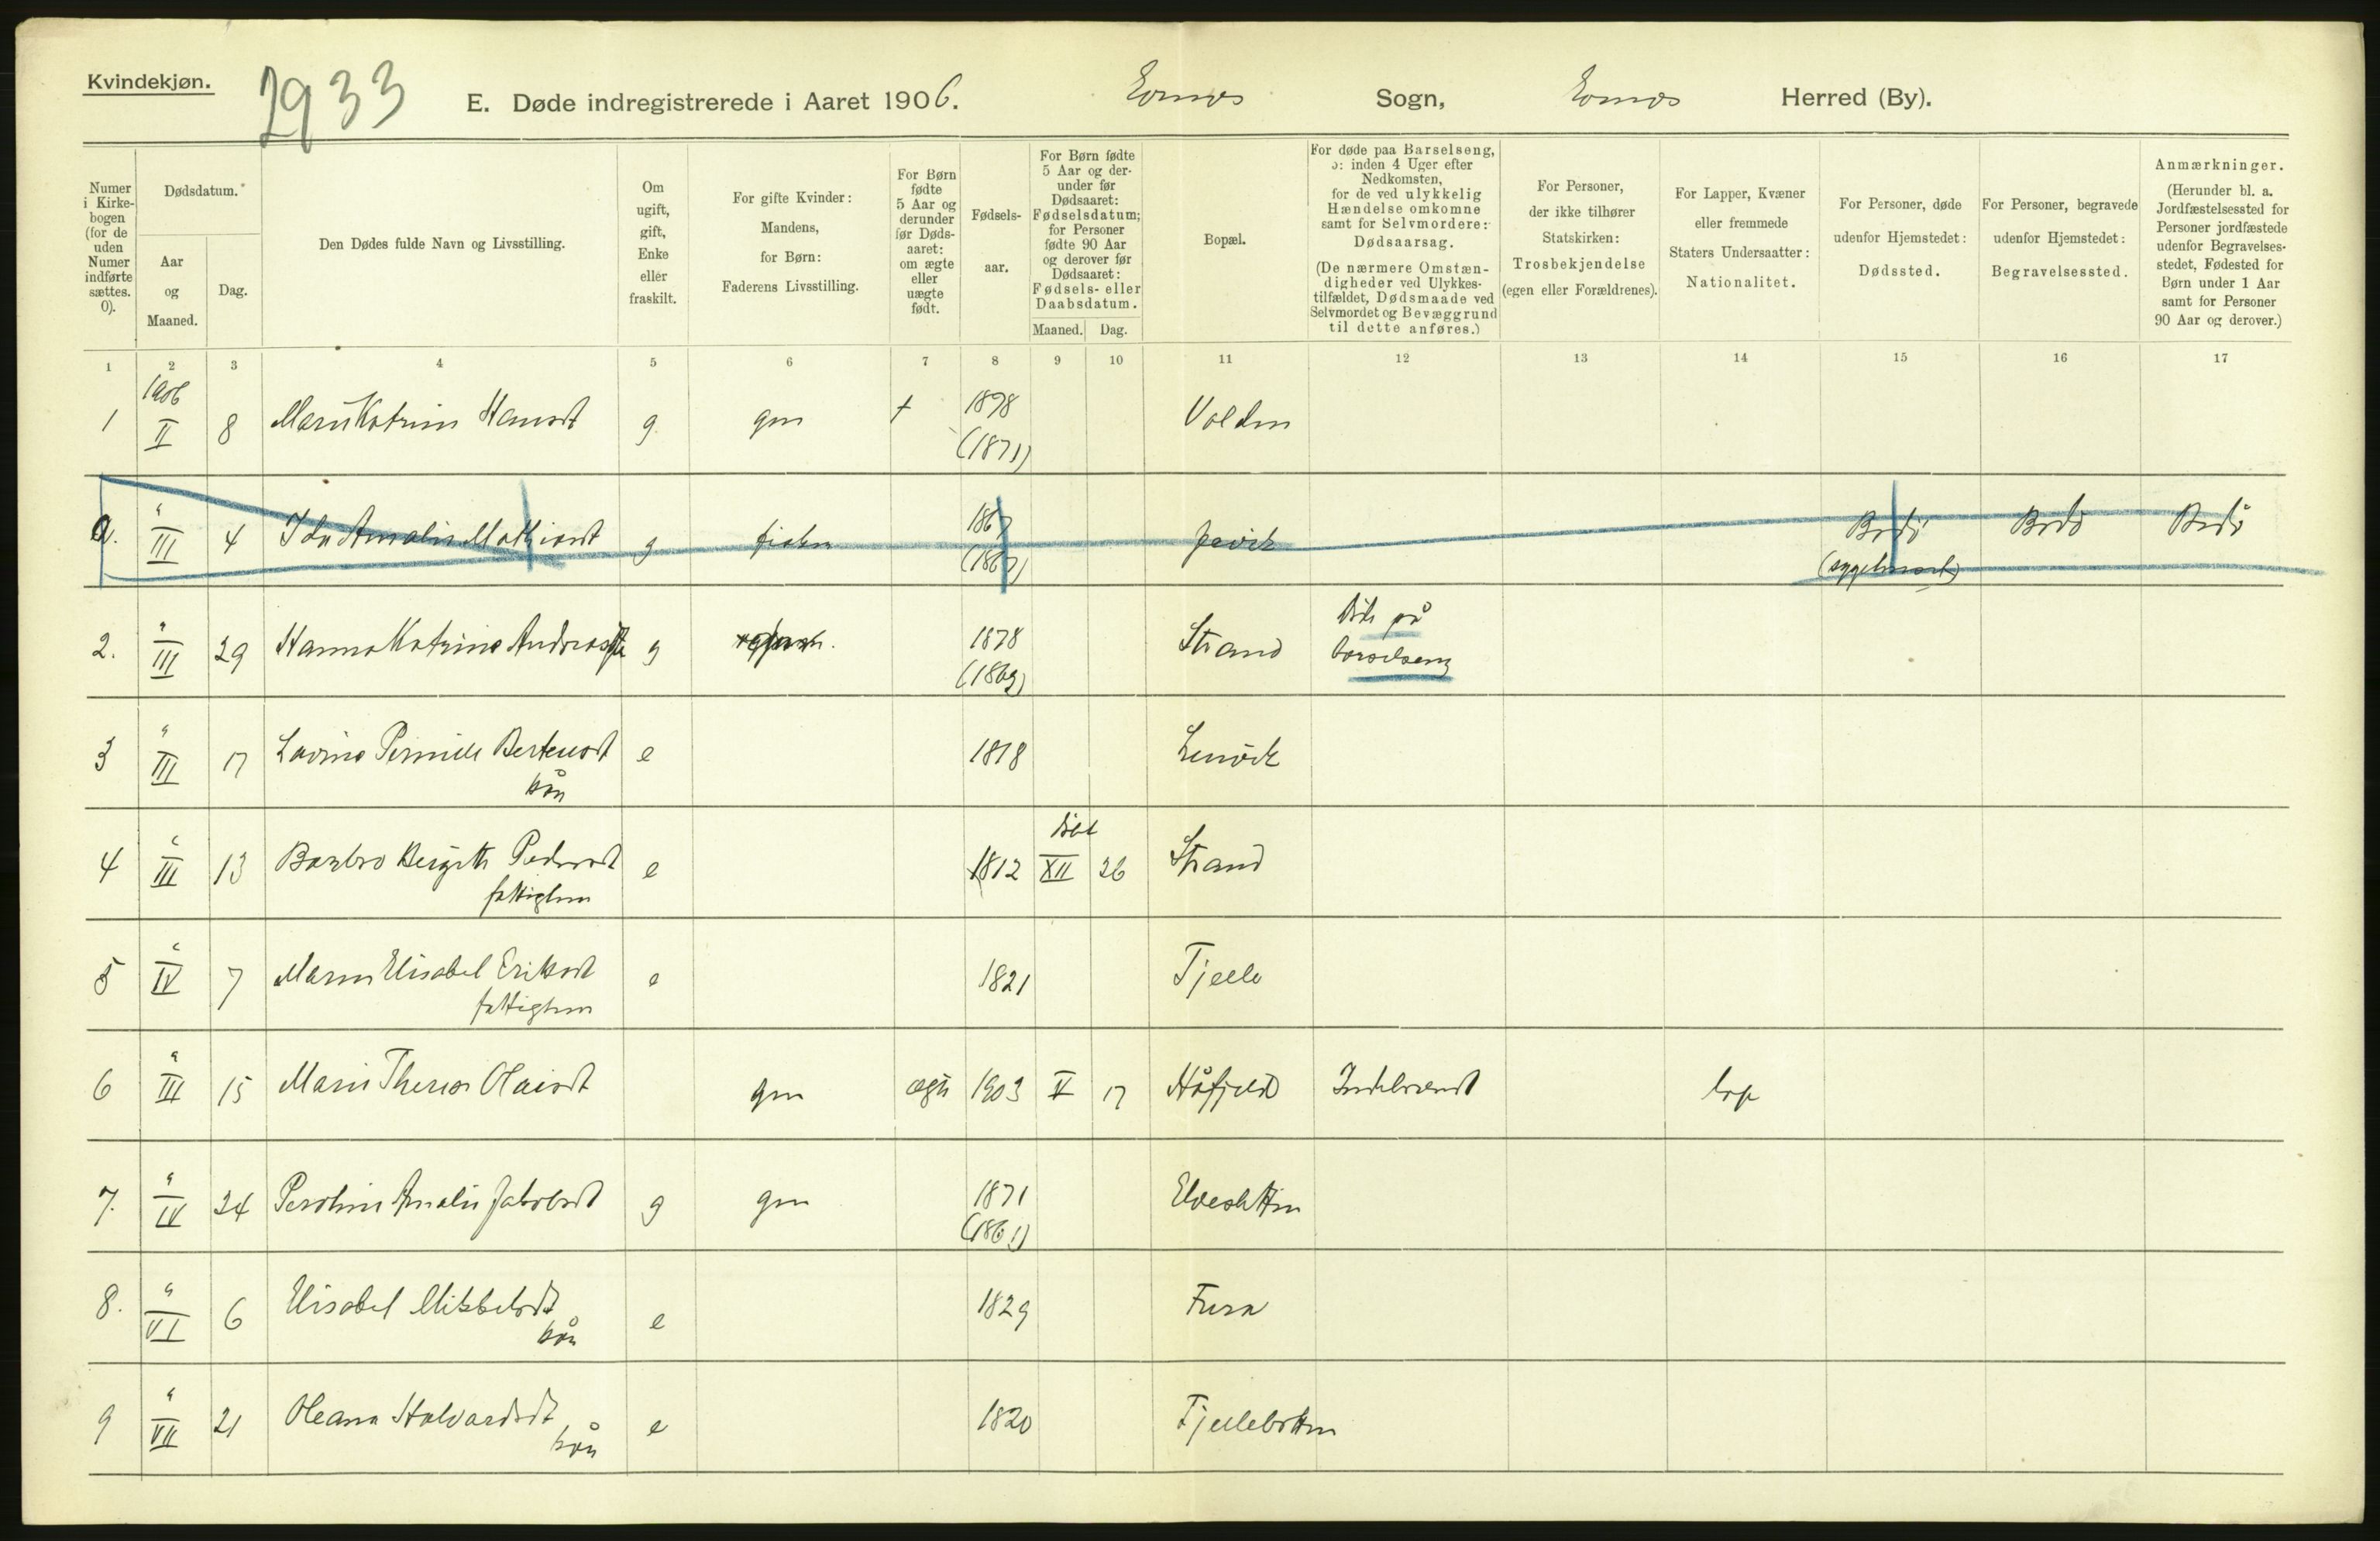 Kvindekjøn.
2933
E. Døde indregistrerede i Aaret 1906. Evenes Sogn, Evenes Herred (By).
Numer i Kirkebogen (for de uden Numer indførte sættes. 0).
Dødsdatum.
Aar og Maaned.
Dag.
Den Dødes fulde Navn og Livsstilling.
Om ugift, gift, Enke eller fraskilt.
For gifte Kvinder: Mandens, for Børn: Faderens Livsstilling.
For Børn fødte 5 Aar og derunder før Dødsaaret: om ægte eller uægte født.
Fødselsaar.
For Børn fødte 5 Aar og derunder før Dødsaaret: Fødselsdatum; for Personer fødte 90 Aar og derover før Dødsaaret: Fødsels- eller Daabsdatum.
Maaned. Dag.
Bopæl.
For døde paa Barselseng, ɔ: inden 4 Uger efter Nedkomsten, for de ved ulykkelig Hændelse omkomne samt for Selvmordere: Dødsaarsag.
(De nærmere Omstændigheder ved Ulykkestilfældet, Dødsmaade ved Selvmordet og Bevæggrund til dette anføres.)
For Personer, der ikke tilhører Statskirken: Trosbekjendelse (egen eller Forældrenes).
For Lapper, Kvæner eller fremmede Staters Undersaatter: Nationalitet.
For Personer, døde udenfor Hjemstedet: Dødssted.
For Personer, begravede udenfor Hjemstedet: Begravelsessted.
Anmærkninger.
(Herunder bl. a. Jordfæstelsessted for Personer jordfæstede udenfor Begravelsesstedet, Fødested for Børn under 1 Aar samt for Personer 90 Aar og derover.)
1 2 3 4 5 6 7 8 9 10 11 12 13 14 15 16 17
1906
1 II 8 Marie Katrine Hansdt g gm + 1878 Volden
(1871)
0. " III 4 Ida Amalie Mathisdt g fisker 1867 Bodö Bodö Bodö
(1867) (sygehuset)
2. " III 29 Hanna Katrine Andreasdt g 1878 Strand Död på
(1869) barselseng
3 " III 17 Lavina Pernille Berteusdt e 1818 Lenvik
kån
döbt
4 " III 13 Barbro Bergitte Pedersdt e 1812 XII 26 Strand
fattiglem
5 " IV 7 Maren Elisabet Eriksdt e 1821 Tjelle
fattiglem
6 " III 15 Marie Therese Olaisdt gm ægte 1903 V 17 Håfjeld Indebrændt lap
7. " IV 24 Peroline Amalie Jakobsdt g gm 1871 Elvesletten
(1861)
8. " VI 6 Elisabet Mikkelsdt e 1829
kån
9 " VII 21 Oleana Halvardsdt e 1820 Tjellebotten
kån